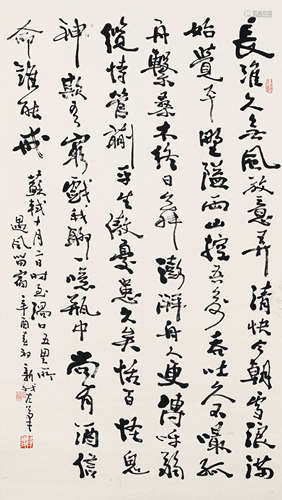 長淮久無風放意弄清快今朝雪浪滿
始覺平野隘兩山控吾前吞吐久不嘬孤
舟繫桑本終日舞澎湃舟人更傳呼弱
纜恃菅蒯平生傲憂患久矣恬百怪鬼
神欺吾窮戲我聊一噫瓶中尚有酒信
命誰能戒
蘇軾十月二日將至渦口五里所
遇風留宿 辛酉春初 新我左筆